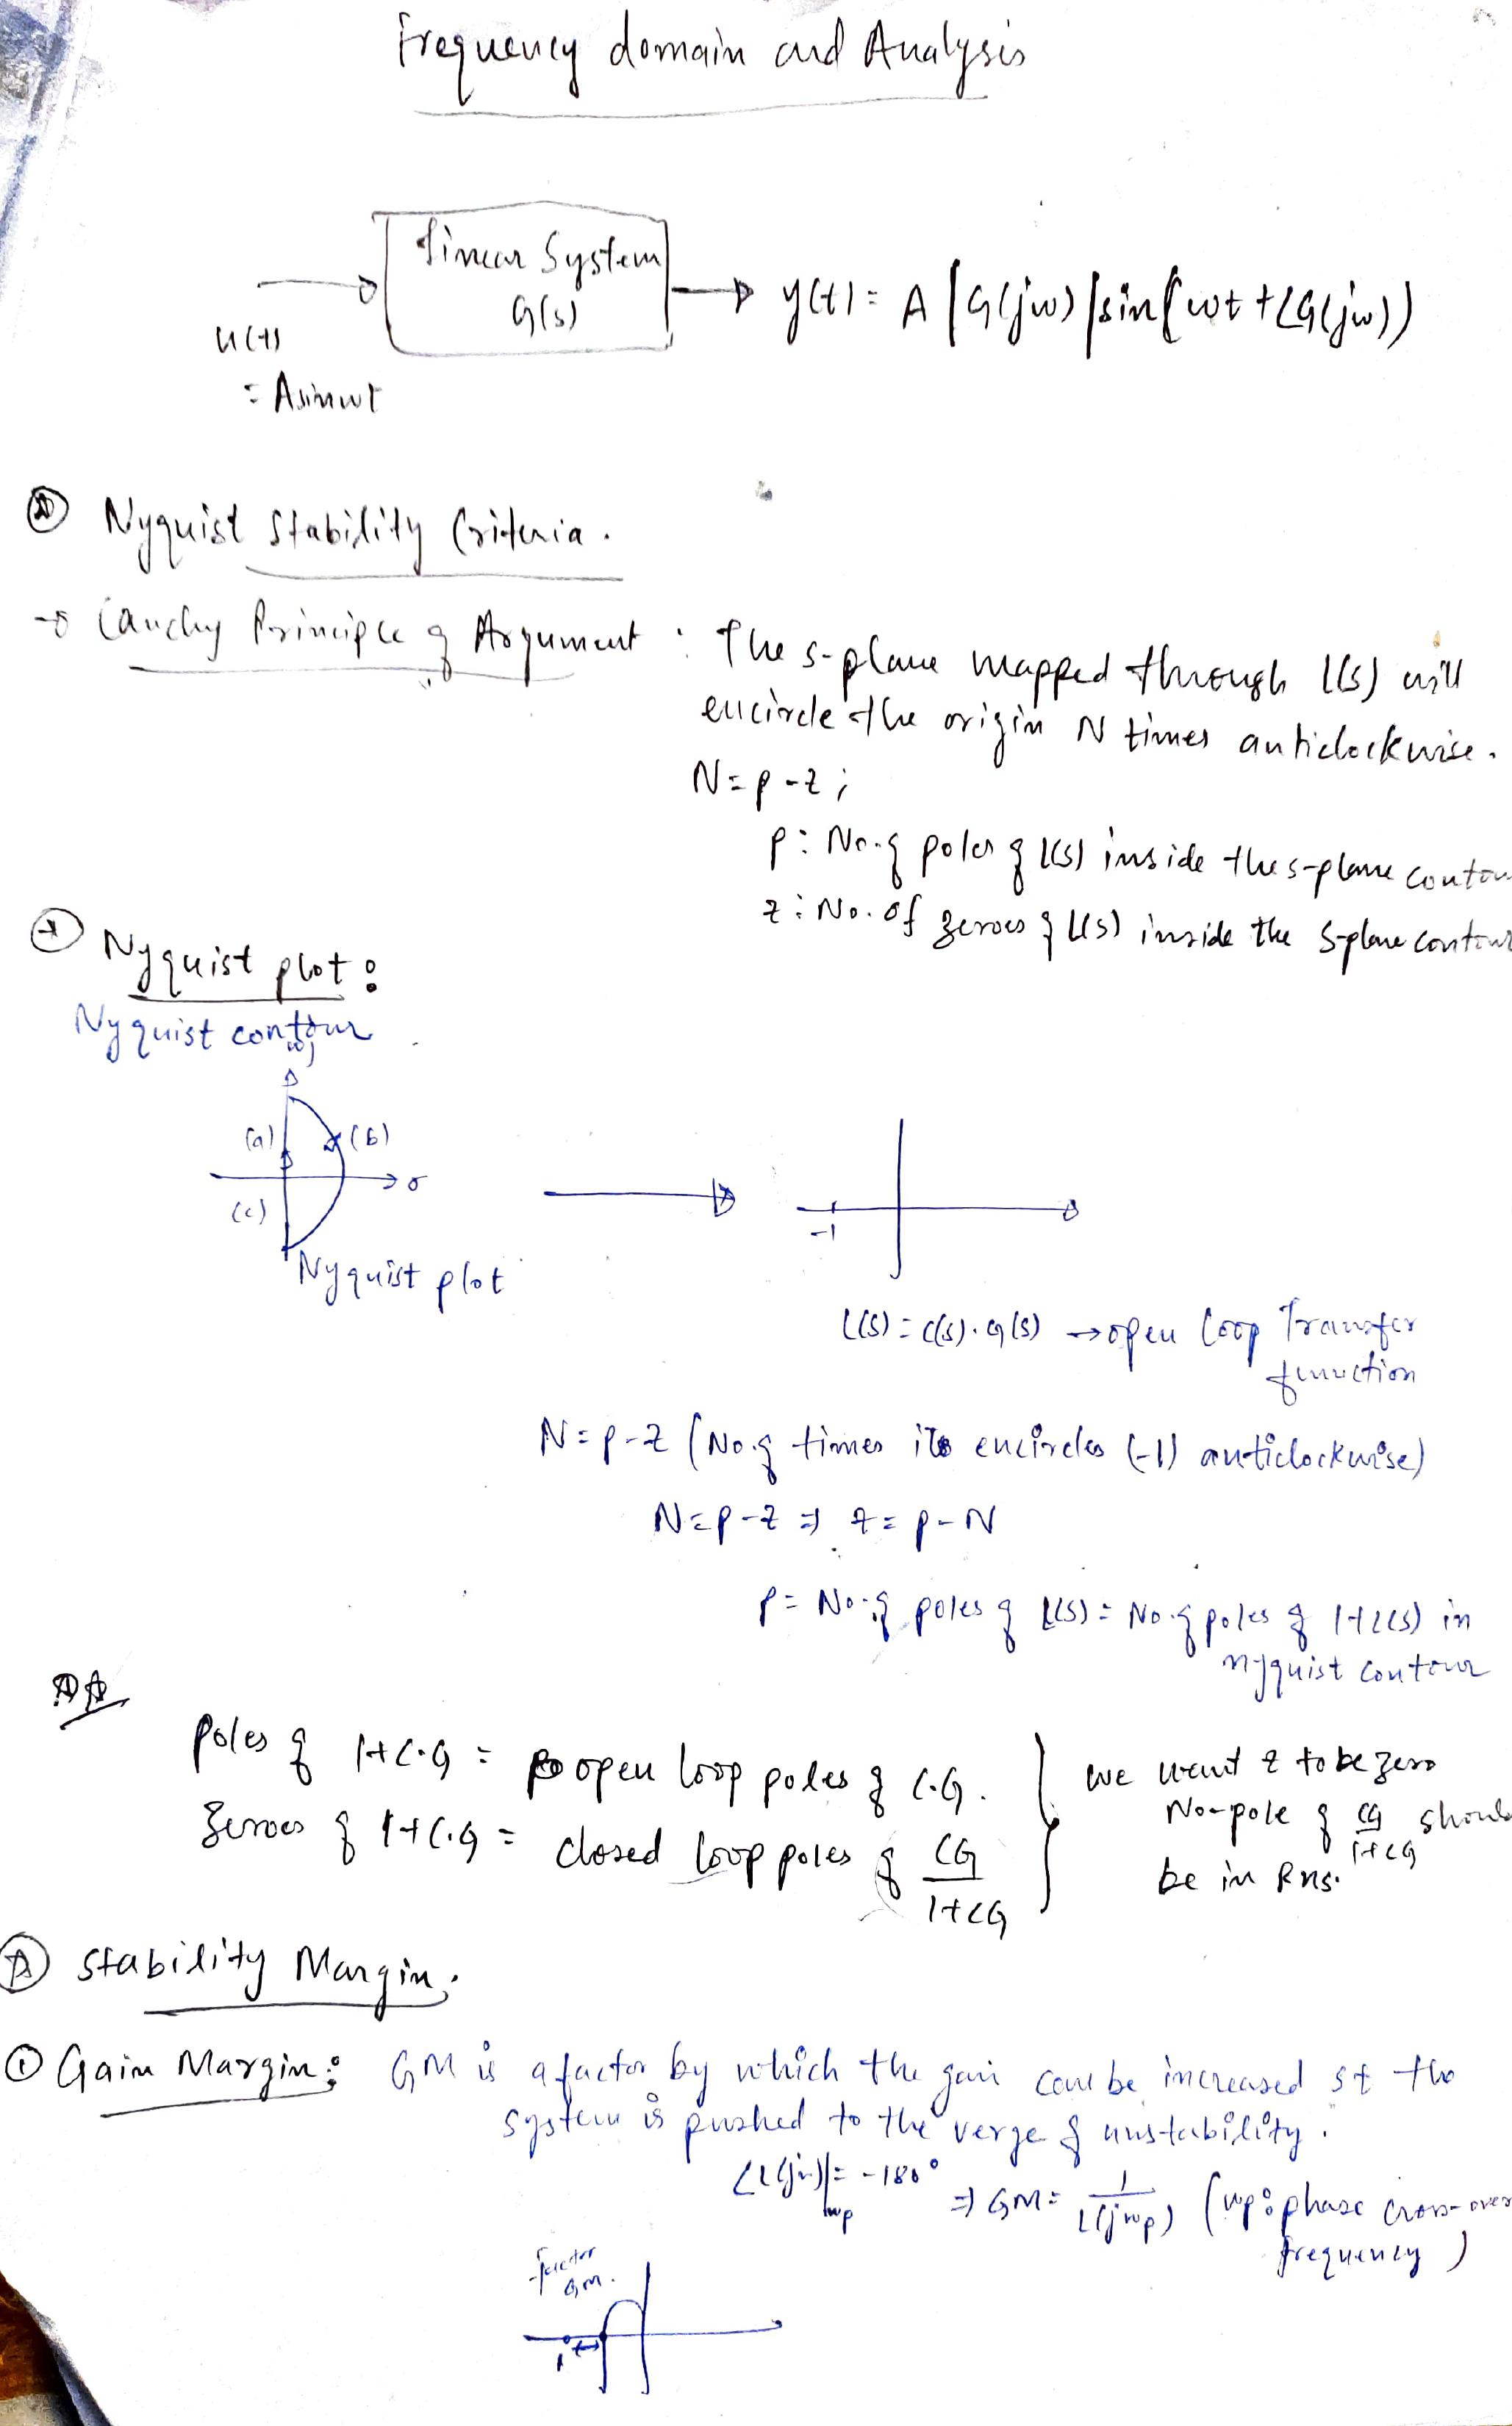 Frequency domain and Analysis
Linear System
G(s)
u(t)
= Asinwt
y(t) = A |G(jw)| sin(wt + ∠G(jw))
Nyquist Stability Criteria.
→ Cauchy Principle of Argument : The s-plane mapped through L(s) will
encircle the origin N times anticlockwise.
N = p - z ;
p : No. of poles of L(s) inside the s-plane contou
z : No. of zeroes of L(s) inside the s-plane contour
Nyquist plot :
Nyquist contour
wj
(a) (b)
σ
(c)
-1
Nyquist plot
L(s) = C(s).G(s) → open loop Transfer
function
N = p - z (No. of times it encircles (-1) anticlockwise)
N = p - z ⇒ z = p - N
p = No. of poles of L(s) = No. of poles of 1+L(s) in
nyquist contour
Poles of 1+C.G = open loop poles of C.G.
Zeroes of 1+C.G = closed loop poles of CG/1+CG
we want z to be zero
No-pole of CG/1+CG shoul
be in RHS.
Stability Margin.
① Gain Margin : GM is a factor by which the gain can be increased st the
system is pushed to the verge of unstability.
∠L(jw)|wp = -180° ⇒ GM = 1/L(jwp) (wp : phase cross-over
frequency)
factor
GM.